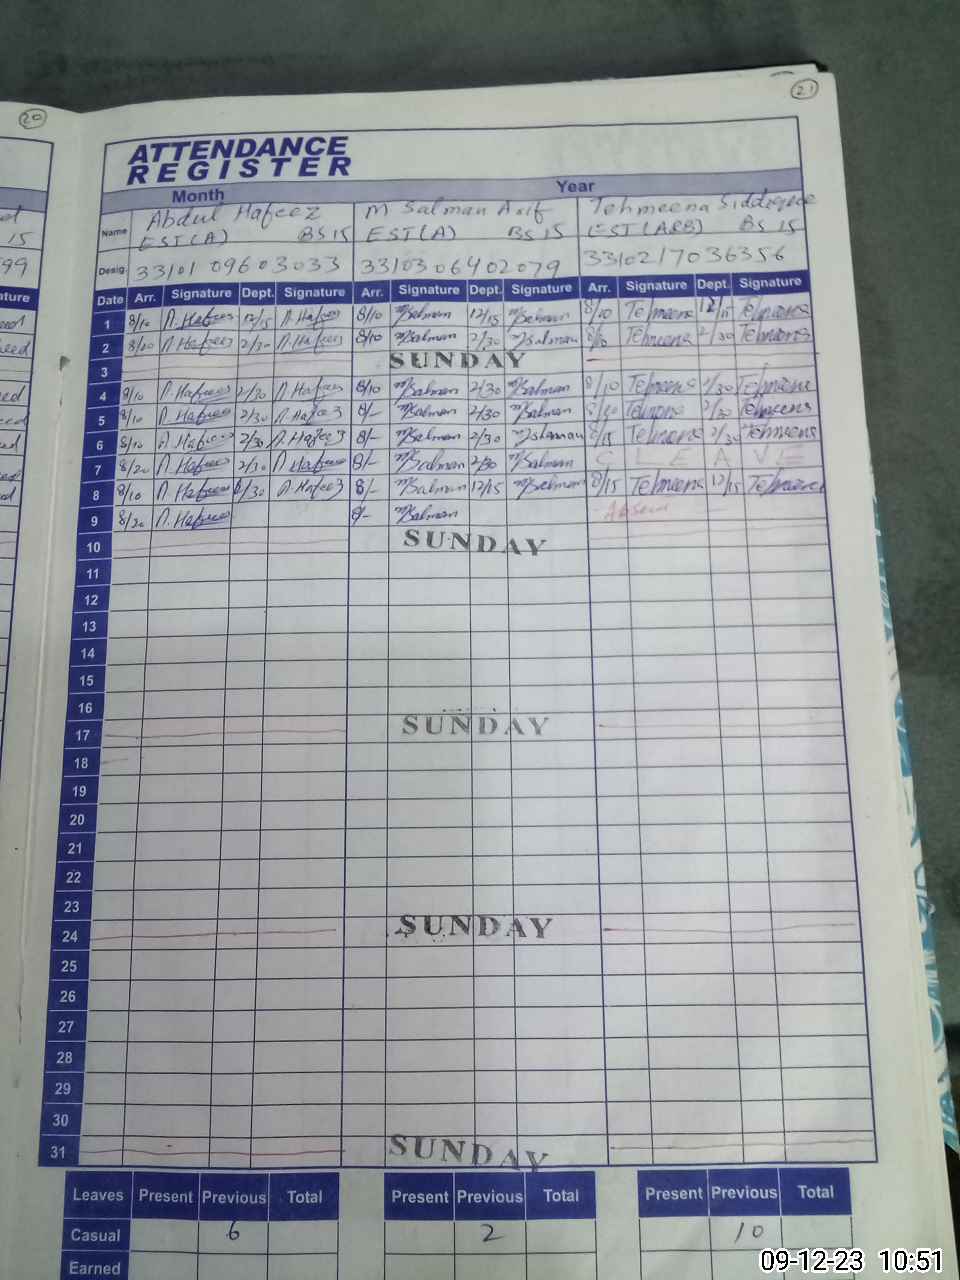 20
21
ATTENDANCE
REGISTER
Month Year
Name Abdul Hafeez M Salman Asif Tehmeena Siddiquee
EST(A) BS 15 EST(A) BS 15 EST(ARB) BS 15
Desig. 33101 0960 3033 33103 06402079 33102170 36356
Date Arr. Signature Dept. Signature Arr. Signature Dept. Signature Arr. Signature Dept. Signature
1 8/10 A.Hafees 12/15 A.Hafees 8/10 mSalman 12/15 mSalman 8/10 Tehmeena 12/15 Tehmeena
2 8/20 A.Hafees 2/30 A.Hafees 8/10 mSalman 2/30 mSalman 8/10 Tehmeena 2/30 Tehmeena
3 SUNDAY
4 8/10 A.Hafees 2/30 A.Hafees 8/10 mSalman 2/30 mSalman 8/10 Tehmeena 2/30 Tehmeena
5 8/10 A.Hafees 2/30 A.Hafeez 8/- mSalman 2/30 mSalman Tehmeena 2/30 Tehmeena
6 8/10 A.Hafees 2/30 A.Hafeez 8/- mSalman 2/30 mSalman 8/15 Tehmeena 2/30 Tehmeena
7 8/20 A.Hafees 2/30 A.Hafees 8/- mSalman 2/30 mSalman C LEAVE
8 8/10 A.Hafees /30 A.Hafeez 8/- mSalman 12/15 mSalman 8/15 Tehmeena 12/15 Tehmeena
9 8/20 A.Hafees 8/- mSalman Absent
10 SUNDAY
11
12
13
14
15
16
17 SUNDAY
18
19
20
21
22
23
24 SUNDAY
25
26
27
28
29
30
31 SUNDAY
Leaves Present Previous Total Present Previous Total Present Previous Total
Casual 6 2 10
Earned
09-12-23 10:51